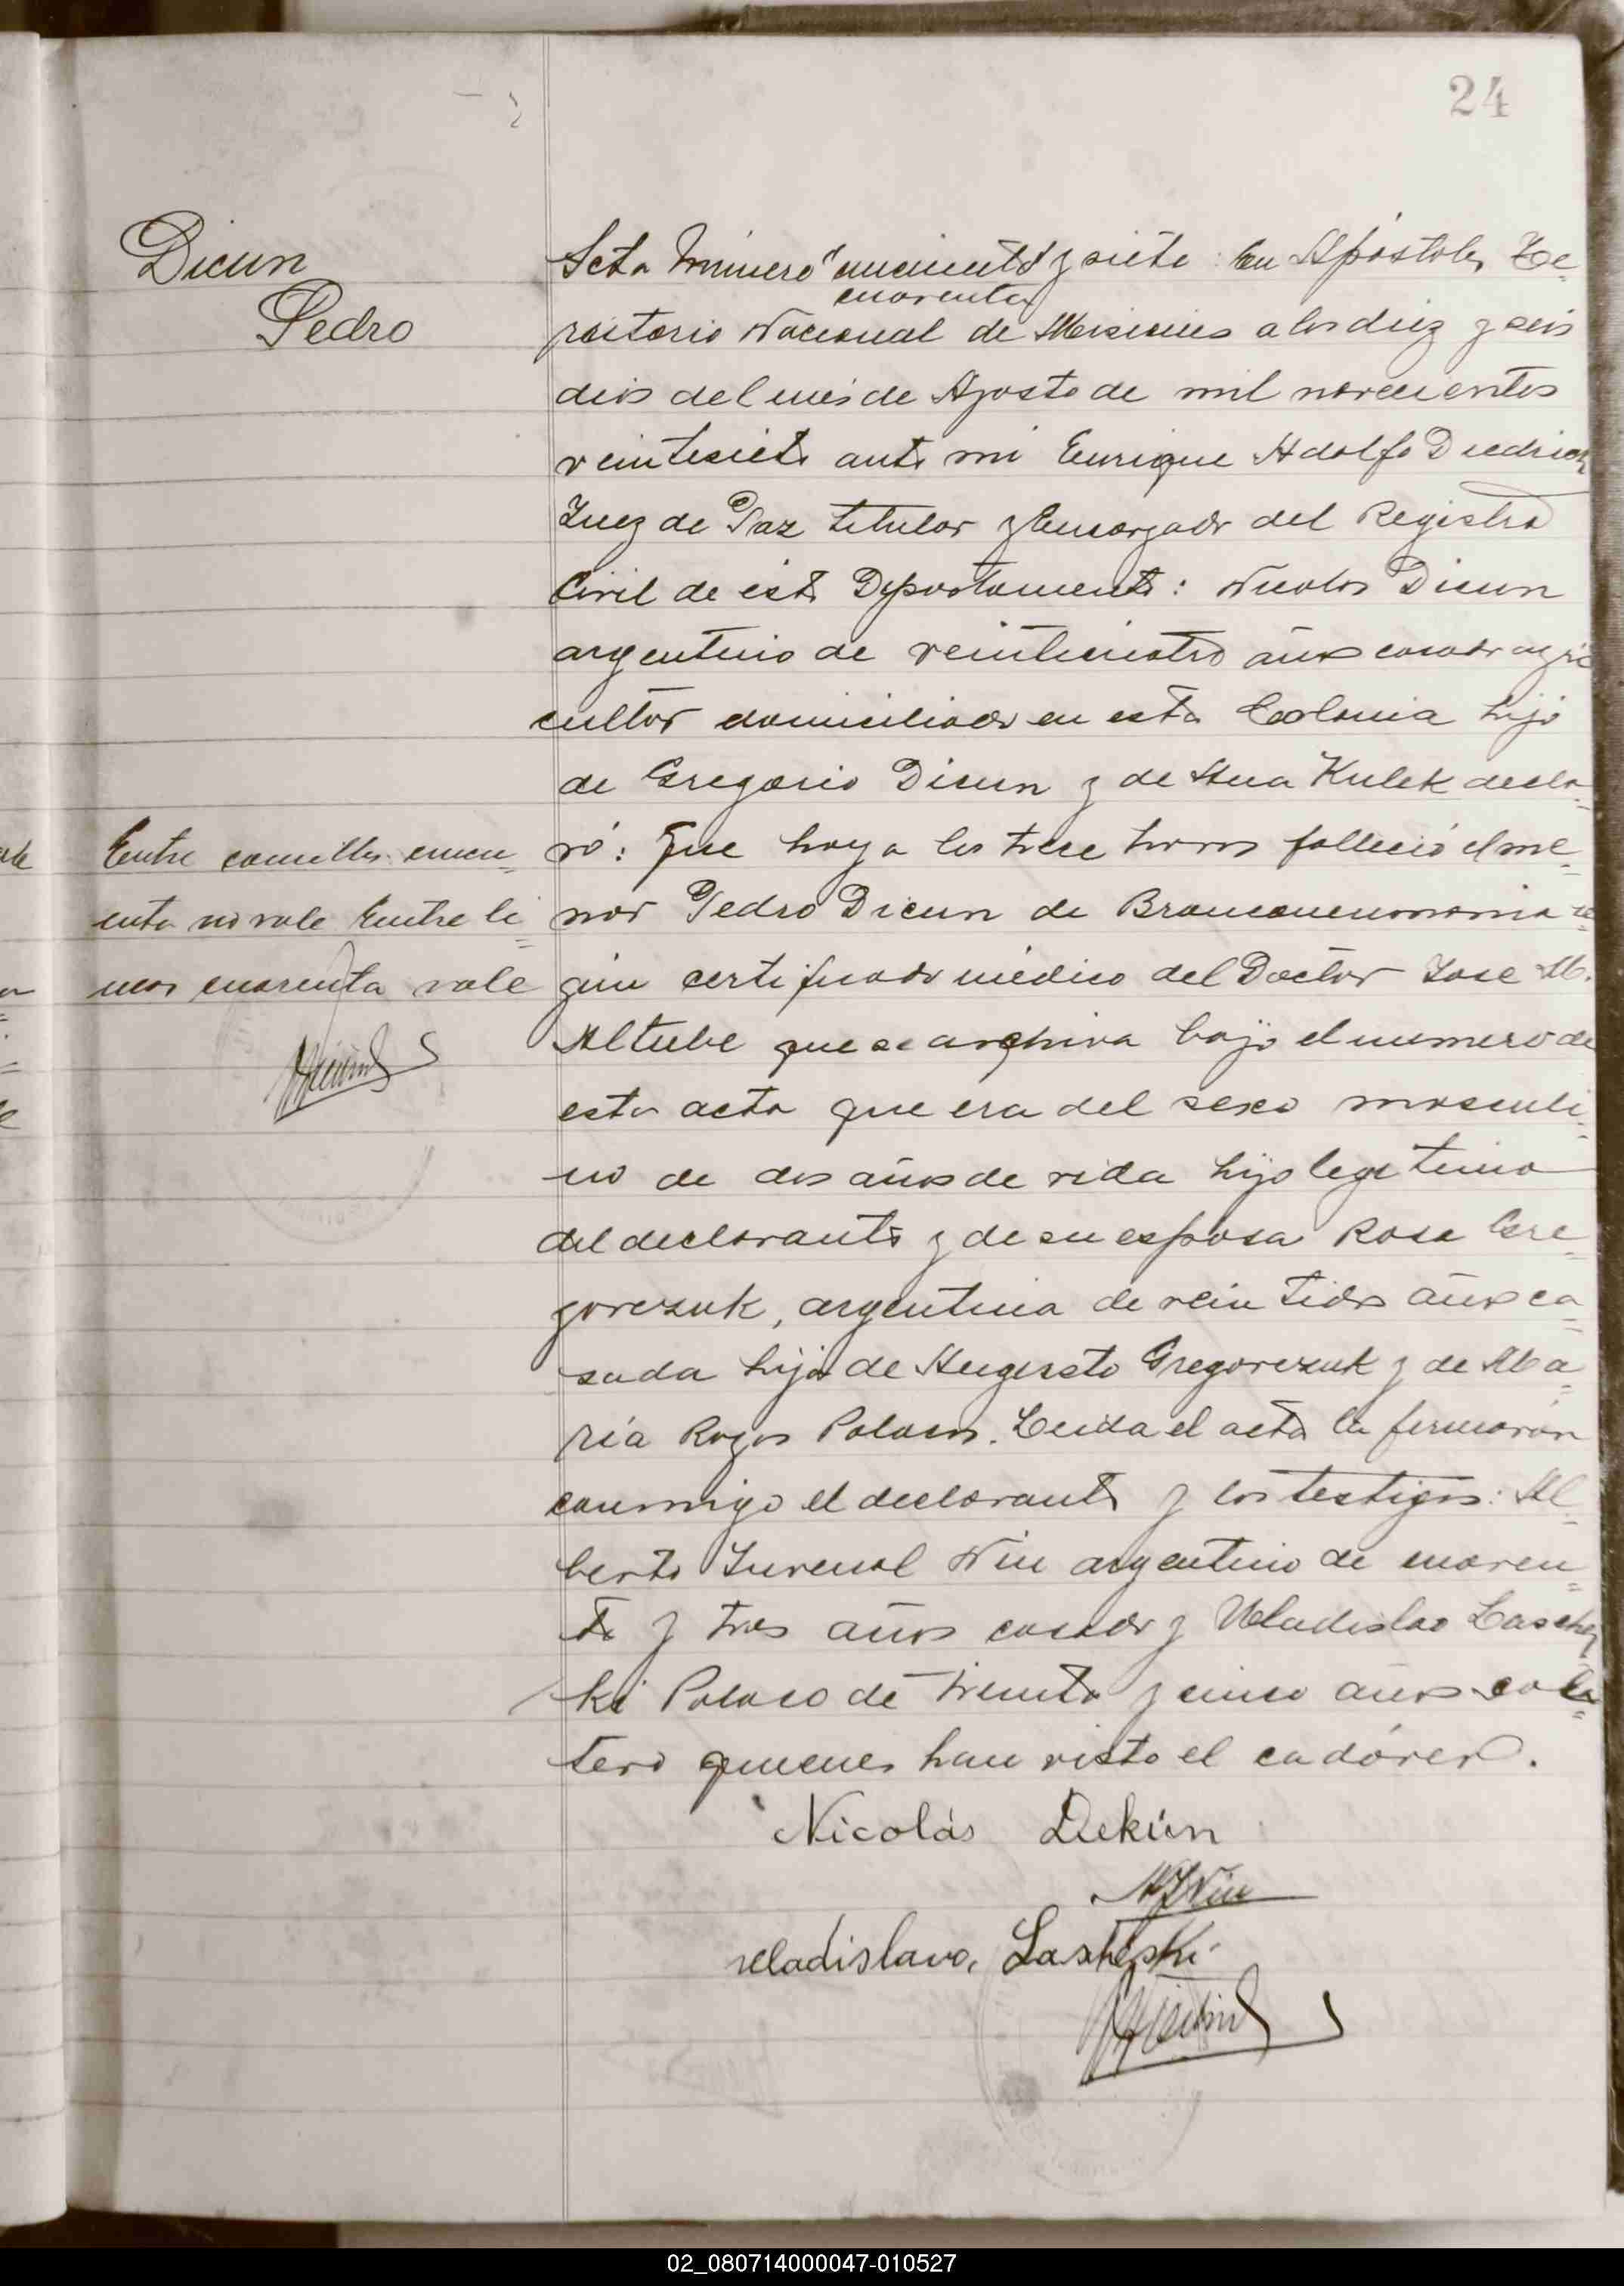 24
Dicun
Pedro
Acta Número "cincuenta" y siete: En Apóstoles, Te-
cuarenta
rritorio Nacional de Misiones a los diez y seis
dias del mes de Agosto de mil novecientos
veintesiete ante mi Enrique Adolfo Diedrich
Juez de Paz titular y Encargado del Registro
Civil de este Departamento: Nicolás Dicun
argentino de veinticuatro años casado agri
cultor domiciliado en esta Colonia hijo
de Gregorio Dicun y de Ana Kulek decla-
ró: Que hoy a las trece horas falleció el me-
nor Pedro Dicun de Bronconeumonia se-
gún certificado médico del Doctor Jose M.
Altube que se archiva bajo el numero de
esta acta que era del sexo masculi-
no de dos años de vida hijo legitimo
del declarante y de su esposa Rosa Gre-
gorczuk, argentina de veintidos años ca-
sada hija de Augusto Gregorczuk y de Ma-
ria Rogos Polacos. Leida el acta la firmarón
conmigo el declarante y los testigos: Al-
berto Juvenal Nin argentino de cuaren-
ta y tres años casado y Uladislao Laschez
ki Polaco de treinta y cinco años solte-
tero quienes han visto el cadáver.
Entre comillas cincu-
enta no vale Entre lí-
neas cuarenta vale
Nicolás Dekún
AJNin
uladislavo, Lasheski
02_080714000047-010527